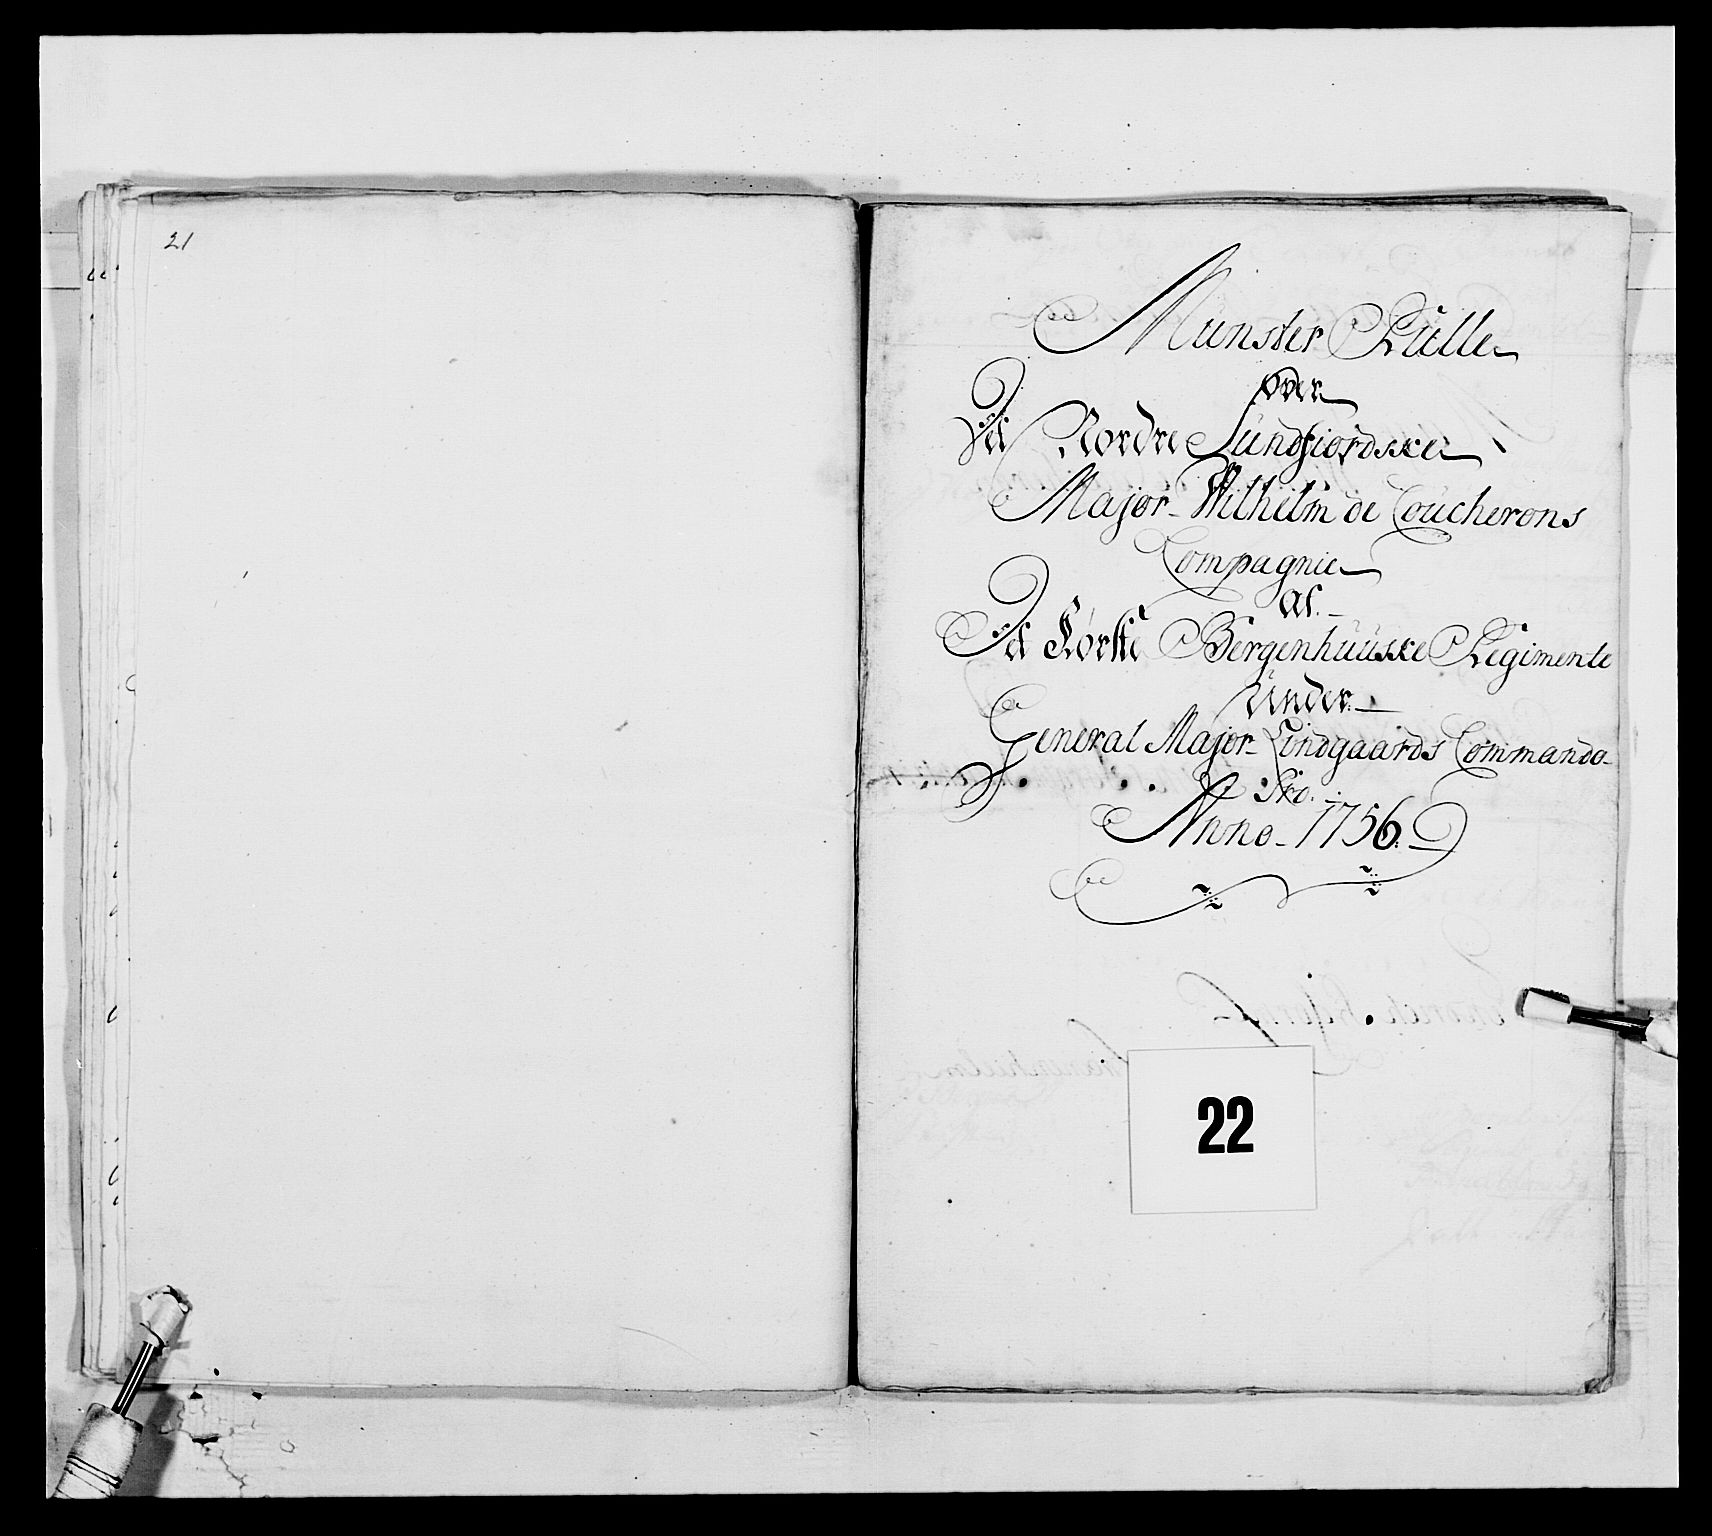 21
Munster Rulle
over
Det Nordre Sundfiordske
Major Wilhelm de Coucherons
Compagnie
af
Det Første Bergenhuuske Regimente
Under
General Major Lindgaards Commando
Pro.
Anno 1756.
22